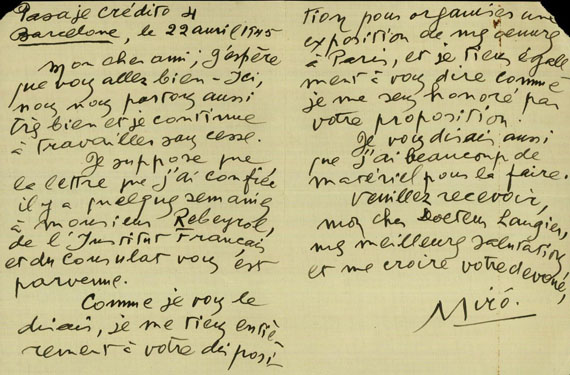 Pasaje crédito 4
Barcelone, le 22 avril 1945
Mon cher ami; j'espère
que vous allez bien - Ici,
nous nous portons aussi
très bien et je continue
à travailler sans cesse.
Je suppose que
la lettre que j'ai confiée
il y a quelques semaines
à Monsieur Rebeyrol,
de l'Institut Français
et du Consulat vous est
parvenue.
Comme je vous le
disais, je me tiens entiè-
rement à votre disposi-
tion pour organiser une
exposition de mes oeuvres
à Paris, et je tiens égale-
ment à vous dire comme
je me sens honoré par
votre proposition.
Je vous disais aussi
que j'ai beaucoup de
matériel pour la faire.
Veuillez recevoir,
mon cher Docteur Laugier,
mes meilleures salutations
et me croire votre dévoué,
Miró.